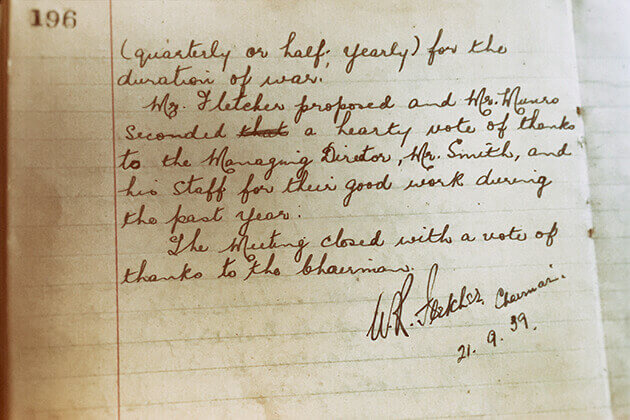 196
(quarterly or half; yearly) for the
duration of war.
Mr. Fletcher proposed and Mr. Munro
seconded that a hearty vote of thanks
to the Managing Diretor, Mr. Smith, and
his Staff for their good work during
the past year.
The Meeting closed with a vote of
thanks to the Chairman.
W.R. Fletcher. Chairman.
21. 9. 39.